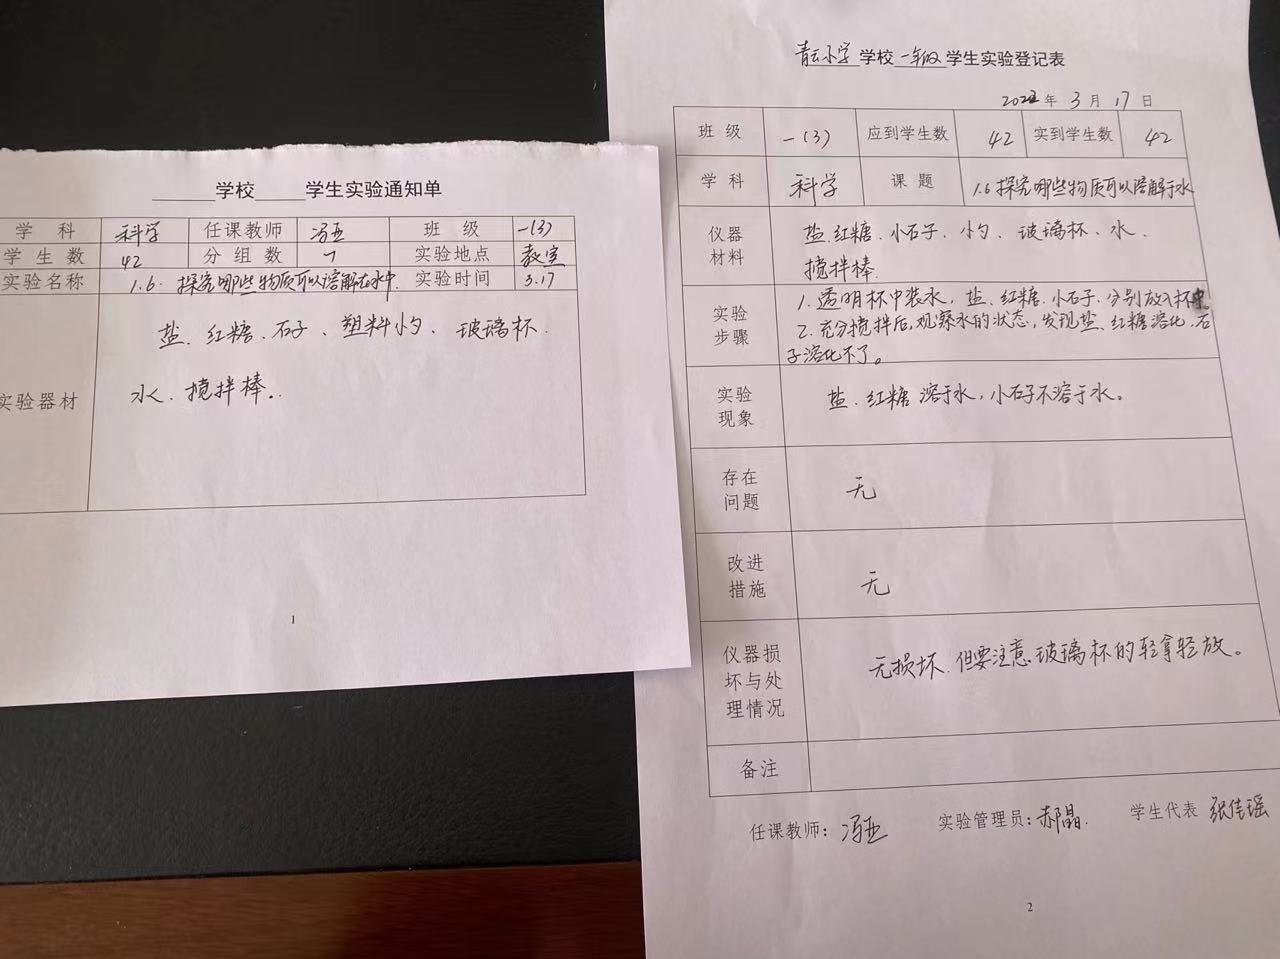 ______学校_____学生实验通知单
学 科 科学 任课教师 冯亚 班 级 一(3)
学生数 42 分组数 实验地点 教室
实验名称 1.6. 探究哪些物质可以溶解在水中. 实验时间 3.17
实验器材
盐、红糖、石子、塑料小勺、玻璃杯、
水、搅拌棒..
1
青云小学 学校 一年级 学生实验登记表
年 3 月 17 日
班 级 一(3) 应到学生数 42 实到学生数 42
学 科 科学 课 题 1.6探究哪些物质可以溶解于水
仪器材料
盐、红糖、小石子、小勺、玻璃杯、水、
搅拌棒.
实验步骤
1.透明杯中装水,盐、红糖、小石子、分别放入杯中。
2.充分搅拌后,观察水的状态,发现盐、红糖溶化,石
子溶化不了。
实验现象
盐、红糖 溶于水,小石子不溶于水。
存在问题
无
改进措施
无
仪器损坏与处理情况
无损坏.但要注意玻璃杯的轻拿轻放。
备注
任课教师: 冯亚 实验管理员: 郝晶. 学生代表 张佳瑶
2